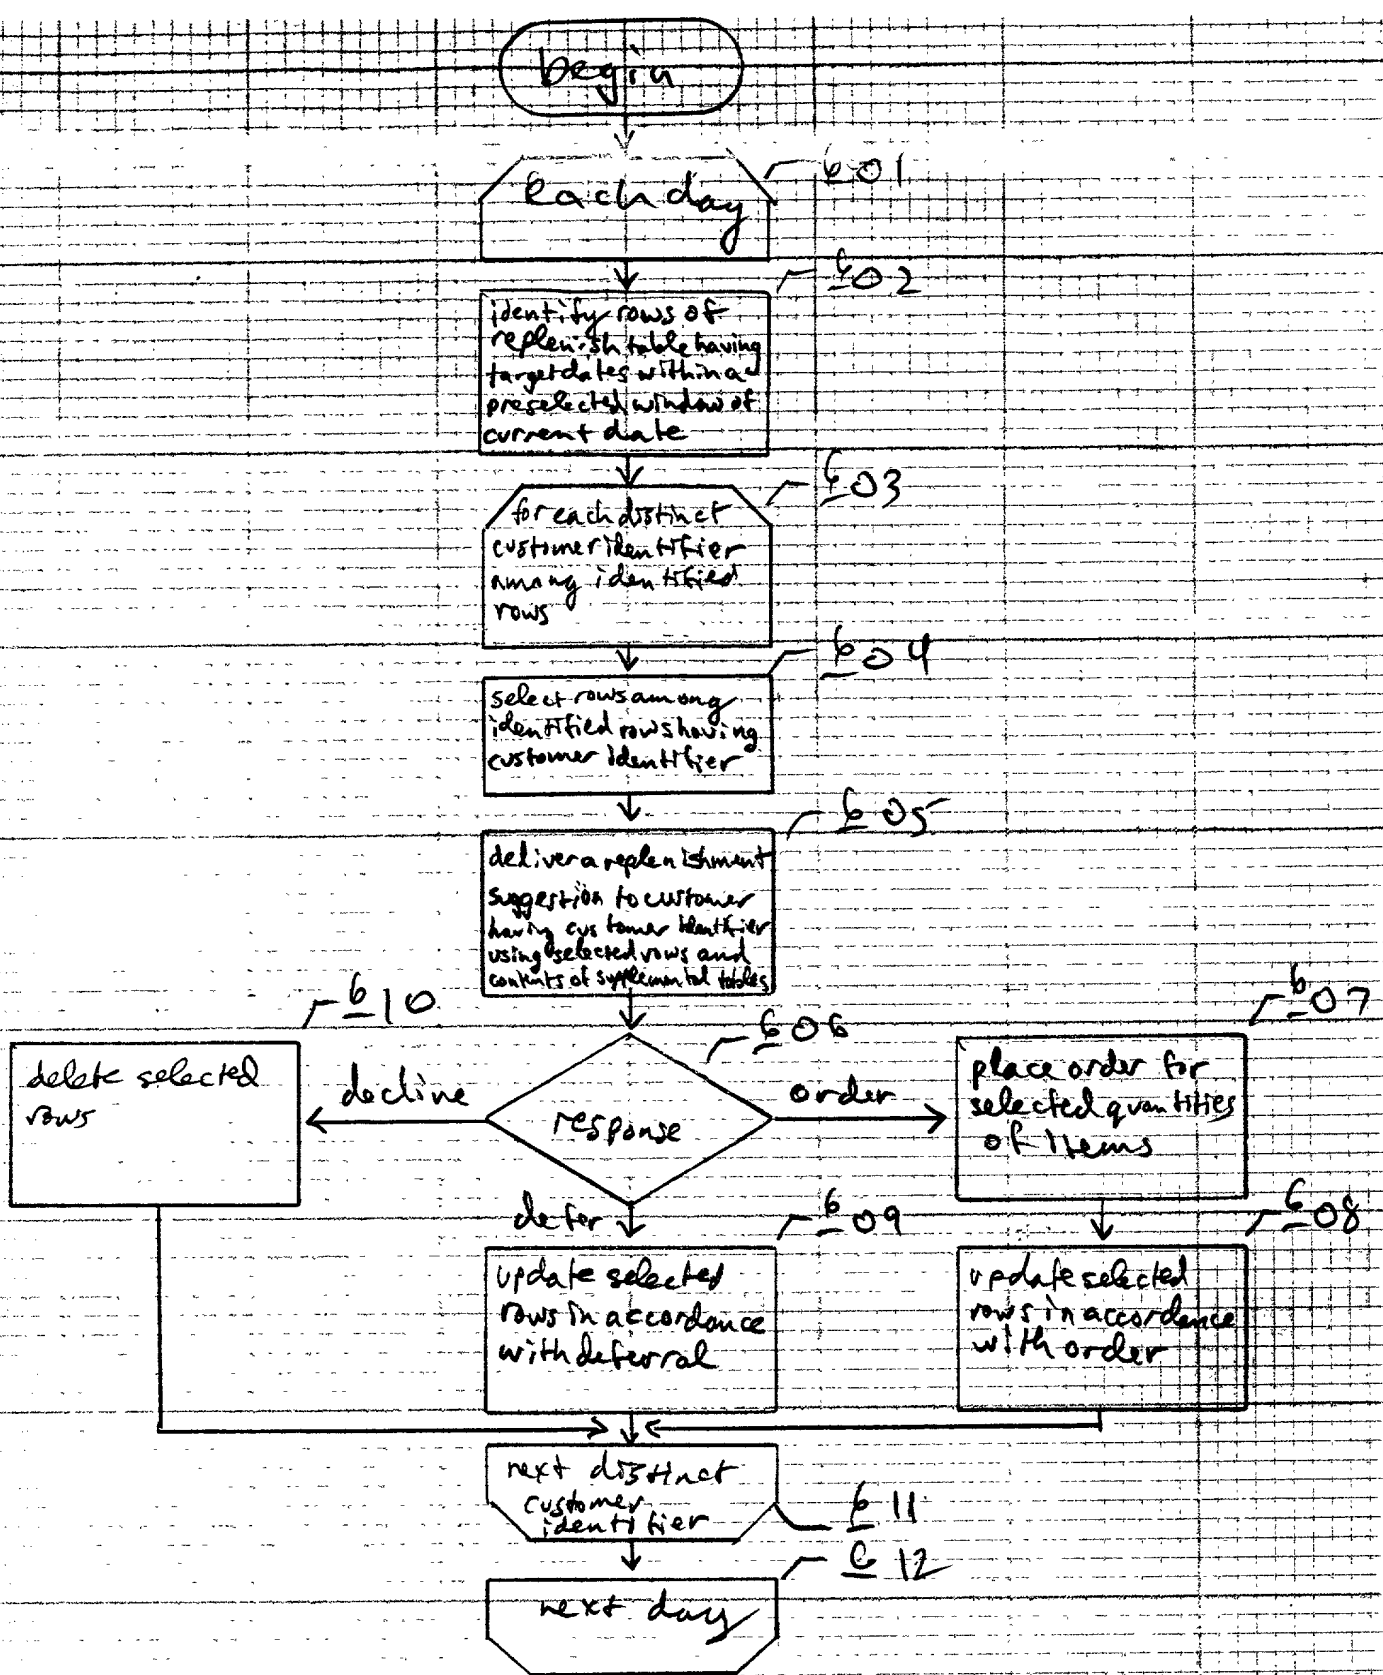 begin
601
each day
602
identify rows of
replenish table having
target dates within a
preselected window of
current date
603
for each distinct
customer identifier
among identified
rows
604
select rows among
identified rows having
customer identifier
605
deliver a replenishment
suggestion to customer
having customer identifier
using selected rows and
contents of supplemental tables
610
606
607
delete selected
rows
decline
response
order
place order for
selected quantities
of items
defer
609
608
update selected
rows in accordance
with deferral
update selected
rows in accordance
with order
next distinct
customer
identifier
611
612
next day